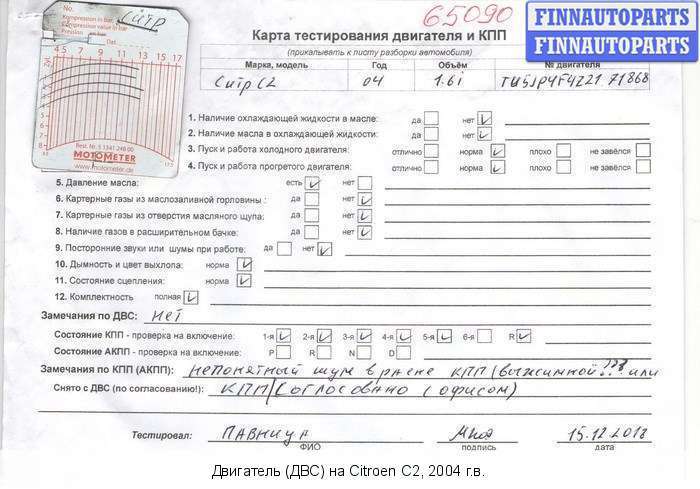 No.
Kompression in bar
Compression value in bar
Pression
Dat.
Ситр
4 5 7 9 11 13 15 17
Best. Nr. 5 1341 248 00
MOTOMETER
www.motometer.de
65090
FINNAUTOPARTS
FINNAUTOPARTS
Карта тестирования двигателя и КПП
(прикалывать к листу разборки автомобиля)
Марка, модель Год Объём № двигателя
Ситр С2 04 1.6i
1. Наличие охлаждающей жидкости в масле: да нет V
2. Наличие масла в охлаждающей жидкости: да нет V
3. Пуск и работа холодного двигателя: отлично норма V плохо не завёлся
4. Пуск и работа прогретого двигателя: отлично норма V плохо не завёлся
5. Давление масла: есть V нет
6. Картерные газы из маслозаливной горловины : да нет V
7. Картерные газы из отверстия масляного щупа: да нет V
8. Наличие газов в расширительном бачке: да нет V
9. Посторонние звуки или шумы при работе: да нет V
10. Дымность и цвет выхлопа: норма V
11. Состояние сцепления: норма V
12. Комплектность полная V
Замечания по ДВС: нет
Состояние КПП - проверка на включение: 1-я V 2-я V 3-я V 4-я V 5-я V 6-я R V
Состояние АКПП - проверка на включение: P R N D
Замечания по КПП (АКПП): непонятный шум в р-не КПП (выжимной??? или
Снято с ДВС (по согласованию!): КПП) Согласованно с офисом)
Тестировал: 15.12.2018
ФИО подпись дата
Двигатель (ДВС) на Citroen C2, 2004 г.в.